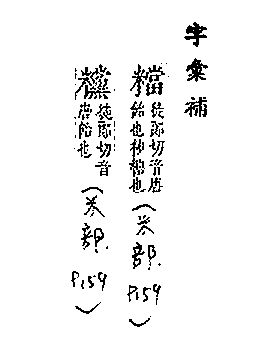 字彙補
徒郎切音唐
飴也 糖也
(米部. P159)
徒郎切音
唐飴也
(米部. P159)